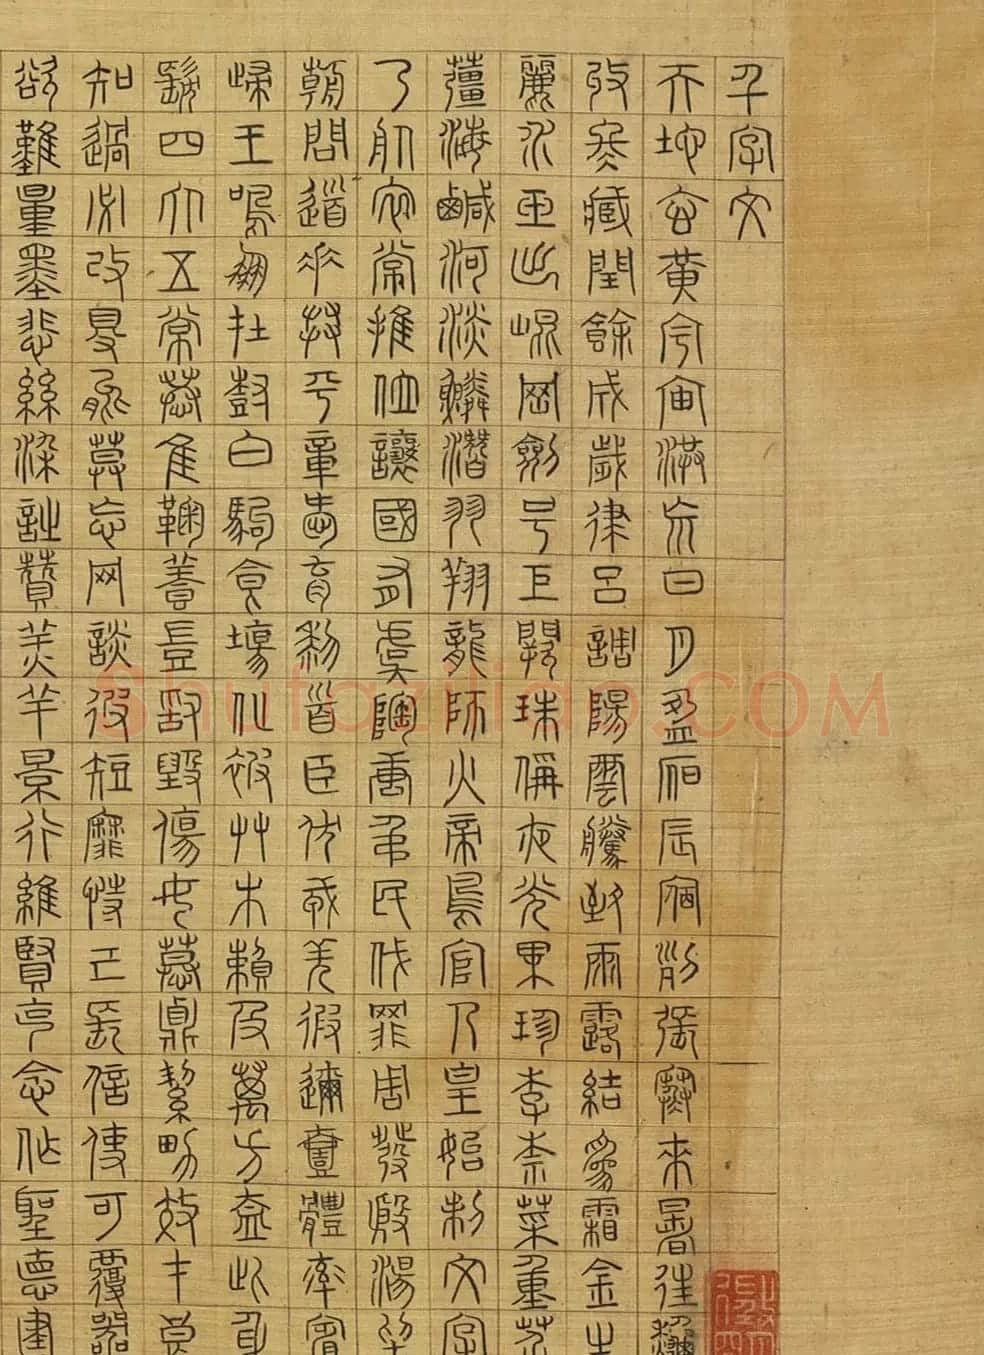 千字文
天地玄黃宇宙洪荒日月盈昃辰宿列張寒來暑往秋
收冬藏閏餘成歲律呂調陽雲騰致雨露結為霜金生
麗水玉出崑岡劍號巨闕珠稱夜光果珍李柰菜重芥
薑海鹹河淡鱗潛羽翔龍師火帝鳥官人皇始制文字
乃服衣裳推位讓國有虞陶唐弔民伐罪周發殷湯坐
朝問道垂拱平章愛育黎首臣伏戎羌遐邇壹體率賓
歸王鳴鳳在樹白駒食場化被草木賴及萬方蓋此身
髮四大五常恭惟鞠養豈敢毀傷女慕貞絜男效才良
知過必改得能莫忘罔談彼短靡恃己長信使可覆器
欲難量墨悲絲染詩贊羔羊景行維賢克念作聖德建
Shufaziliao.COM